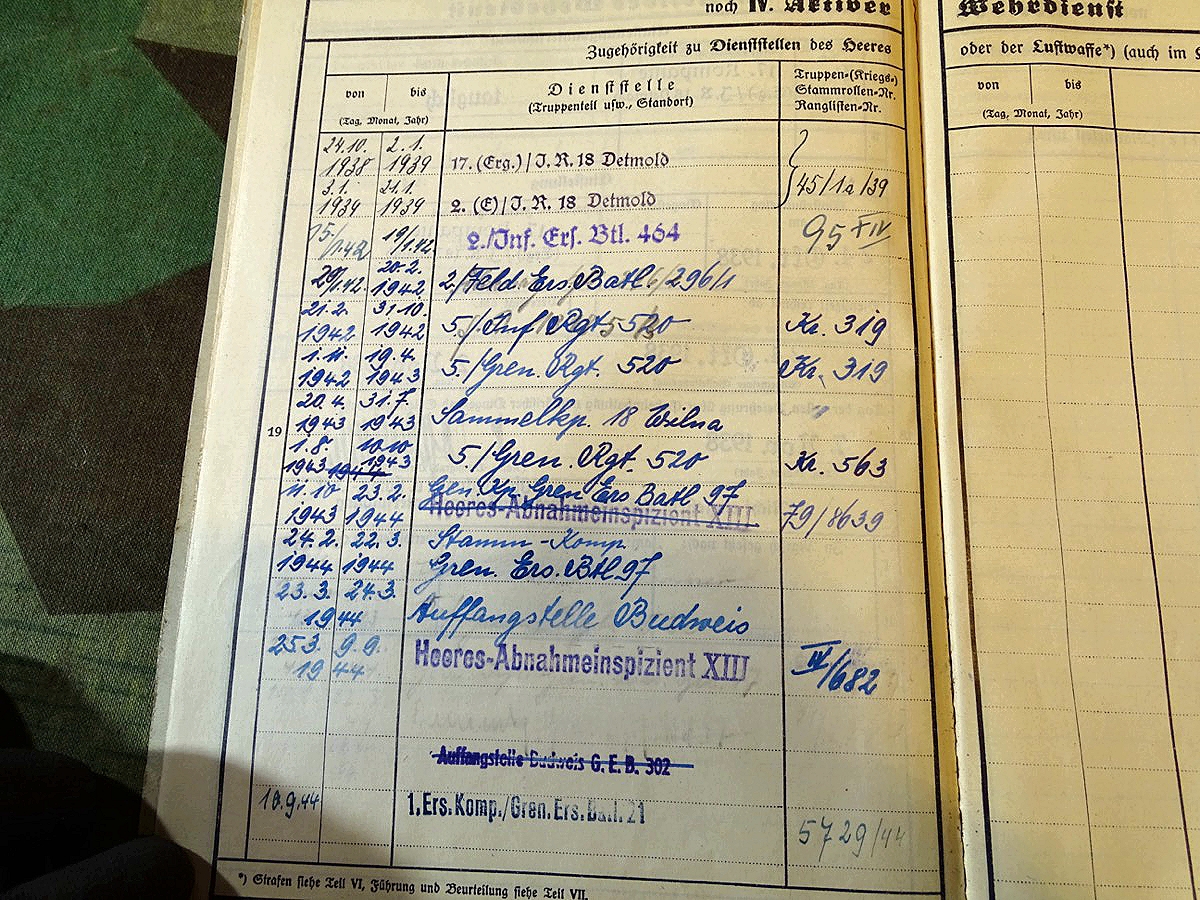 noch IV. Aktiver Wehrdienst
Zugehörigkeit zu Dienststellen des Heeres
oder der Luftwaffe*) (auch im
von bis
Dienststelle
(Truppenteil usw., Standort)
Truppen-(Kriegs-)
Stammrollen-Nr.
Ranglisten-Nr.
(Tag, Monat, Jahr)
von bis
(Tag, Monat, Jahr)
24.10. 2.1.
1938 1939 17. (Erg.) / I. R. 18 Detmold
3.1. 21.1. 45/1a/39
1939 1939 2. (E) / I. R. 18 Detmold
15/1.42 19/1.42 2./Inf. Ers. Btl. 464 95
20/1.42. 20.2. 1942 2/Feld Ers. Batl. 296/1
21.2. 31.10.
1942 1942 5./Inf. Rgt. 520 Kr. 319
1.11. 19.4.
1942 1943 5./Gren. Rgt. 520 Kr. 319
20.4. 31.7.
19 1943 1943 Sammelkp. 18 Wilna "
1.8. 10.10
1943 1943 5./Gren. Rgt. 520 Kr. 563
11.10 23.2. Gen. Kp. Gren Ers Batl. 97
1943 1944 Heeres-Abnahmeinspizient XIII 79/8639
24.2. 22.3. Stamm-Komp.
1944 1944 Gren. Ers. Btl. 97
23.3. 24.3.
1944 Auffangstelle Budweis
25.3. 9.9.
1944 Heeres-Abnahmeinspizient XIII IV/682
Auffangstelle Budweis G. E. B. 302
10.9.44 1. Ers. Komp./Gren. Ers. Batl. 21
5729/44
*) Strafen siehe Teil VI, Führung und Beurteilung siehe Teil VII.